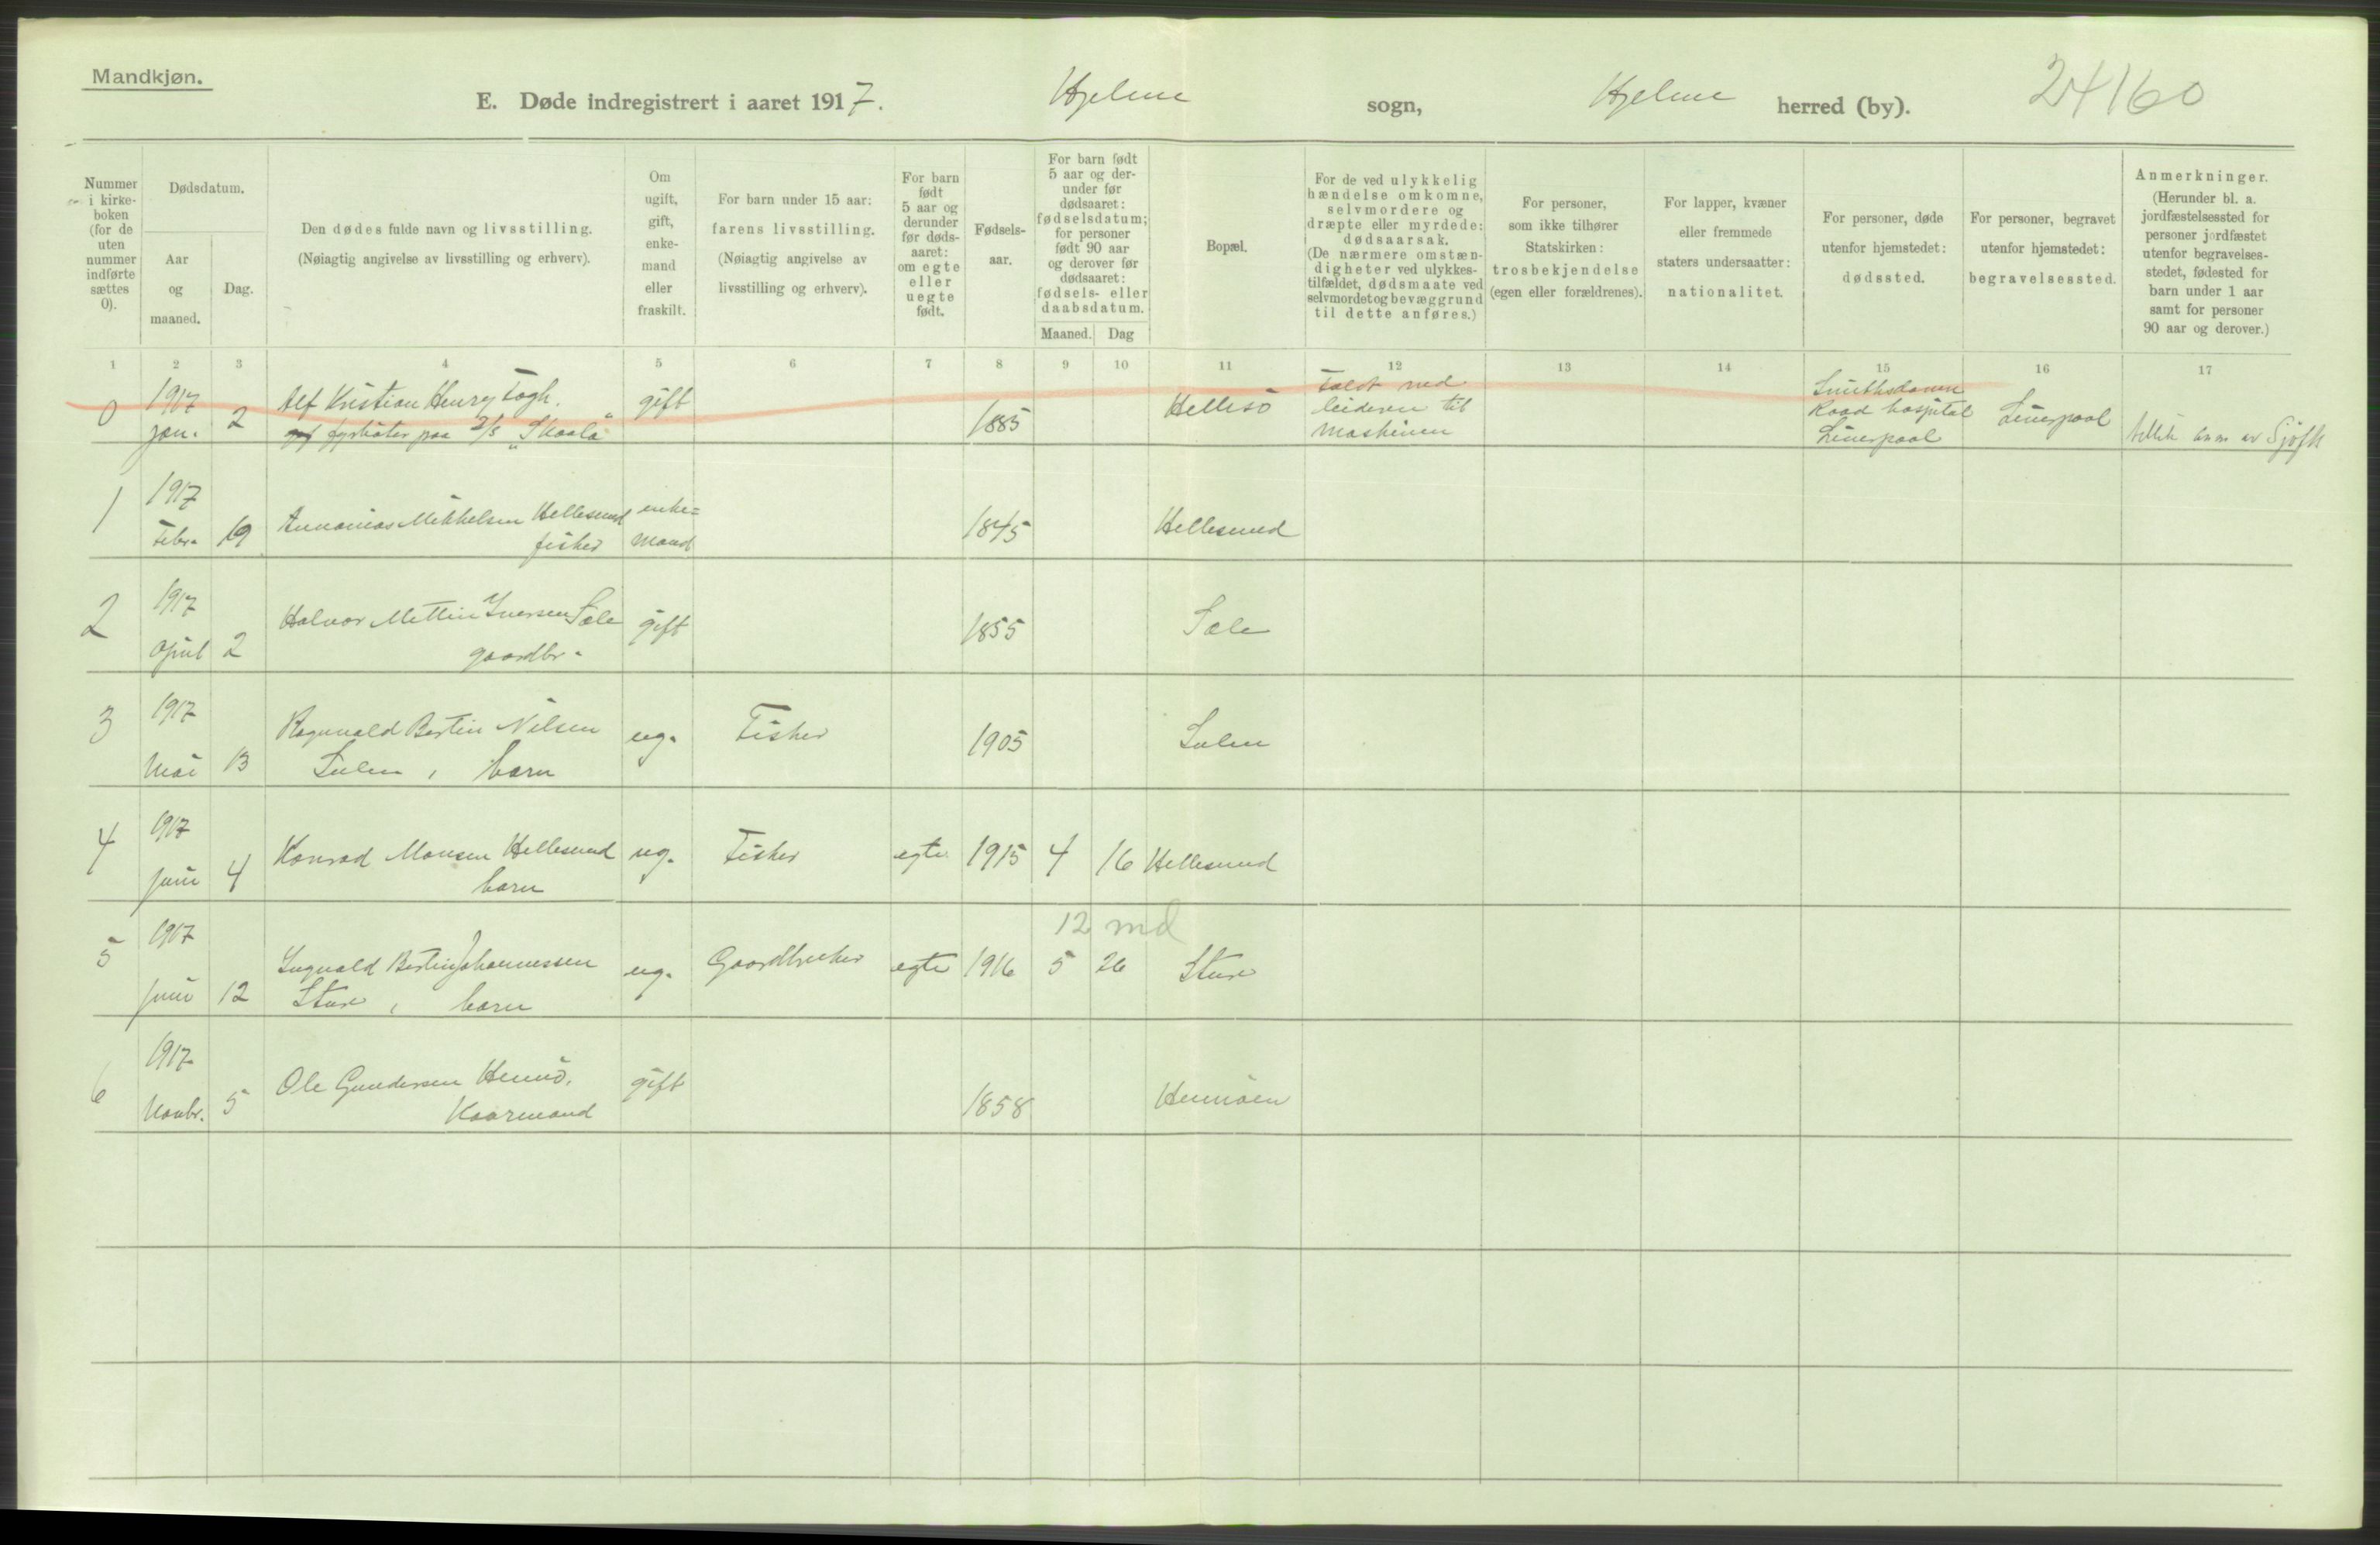 Mandkjøn.
E. Døde indregistrert i aaret 1917. Hjelme sogn, Hjelme herred (by). 24160
Nummer i kirkeboken (for de uten nummer indførte sættes 0).
Dødsdatum.
Aar og maaned.
Dag.
Den dødes fulde navn og livsstilling.
(Nøiagtig angivelse av livsstilling og erhverv).
Om ugift, gift, enkemand eller fraskilt.
For barn under 15 aar:
farens livsstilling.
(Nøiagtig angivelse av
livsstilling og erhverv).
For barn født 5 aar og derunder før dødsaaret: om egte eller uegte født.
Fødselsaar.
For barn født
5 aar og derunder før
dødsaaret:
fødselsdatum;
for personer
født 90 aar
og derover før
dødsaaret:
fødsels- eller
daabsdatum.
Maaned. Dag
Bopæl.
For de ved ulykkelig
hændelse omkomne,
selvmordere og
dræpte eller myrdede:
dødsaarsak.
(De nærmere omstændigheter ved ulykkestilfældet, dødsmaate ved
selvmordet og bevæggrund
til dette anføres.)
For personer,
som ikke tilhører
Statskirken:
trosbekjendelse
(egen eller forældrenes).
For lapper, kvæner
eller fremmede
staters undersaatter:
nationalitet.
For personer, døde
utenfor hjemstedet:
dødssted.
For personer, begravet
utenfor hjemstedet:
begravelsessted.
Anmerkninger.
(Herunder bl. a.
jordfæstelsessted for
personer jordfæstet
utenfor begravelsesstedet, fødested for
barn under 1 aar
samt for personer
90 aar og derover.)
1 2 3 4 5 6 7 8 9 10 11 12 13 14 15 16 17
0 1917 jan. 2 Alf Kristian Henry Fogh. gift 1885 Hellisö Faldt ned
fyrböter paa D/S "Skaala" leideren til
maskinen
Road hospital
Liverpool Liverpool
1 1917 Febr. 19 Annanias Mikkelsen Hellesund enke=
fisker mand 1845 Hellesund
2 1917 April 2 Halvor Mettin Iversen Sæle gift 1855 Sæle
gaardbr.
3 1917 Mai 13 Ragnvald Bertin Nilsen ug. Fisker 1905 Sulen
Sulen, barn
4 1917 Juni 4 Konrad Monsen Hellesund ug. Fisker egte 1915 4 16 Hellesund
barn
12 md
5 1917 Juni 12 Ingvald Bertin Johannessen ug. Gaardbruker egte 1916 5 26 Sture
Sture, barn
6 1917 Novbr. 5 Ole Gundersen Hernö, gift 1858 Hernöen
Kaarmand